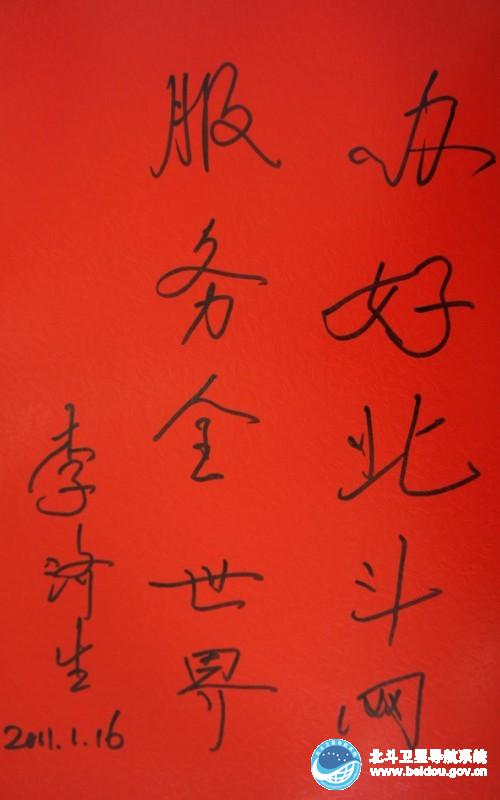 办好北斗网
服务全世界
李济生
2011.1.16
北斗卫星导航系统
www.beidou.gov.cn